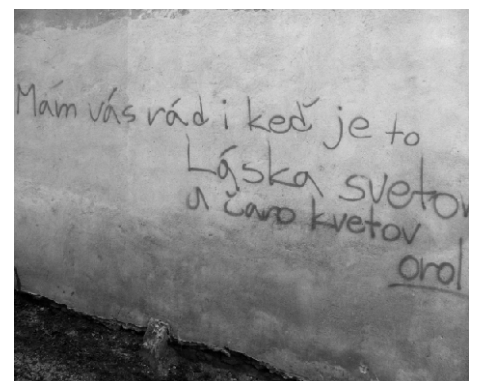 Mám vás rád i keď je to
Láska svetov
a čaro kvetov
orol